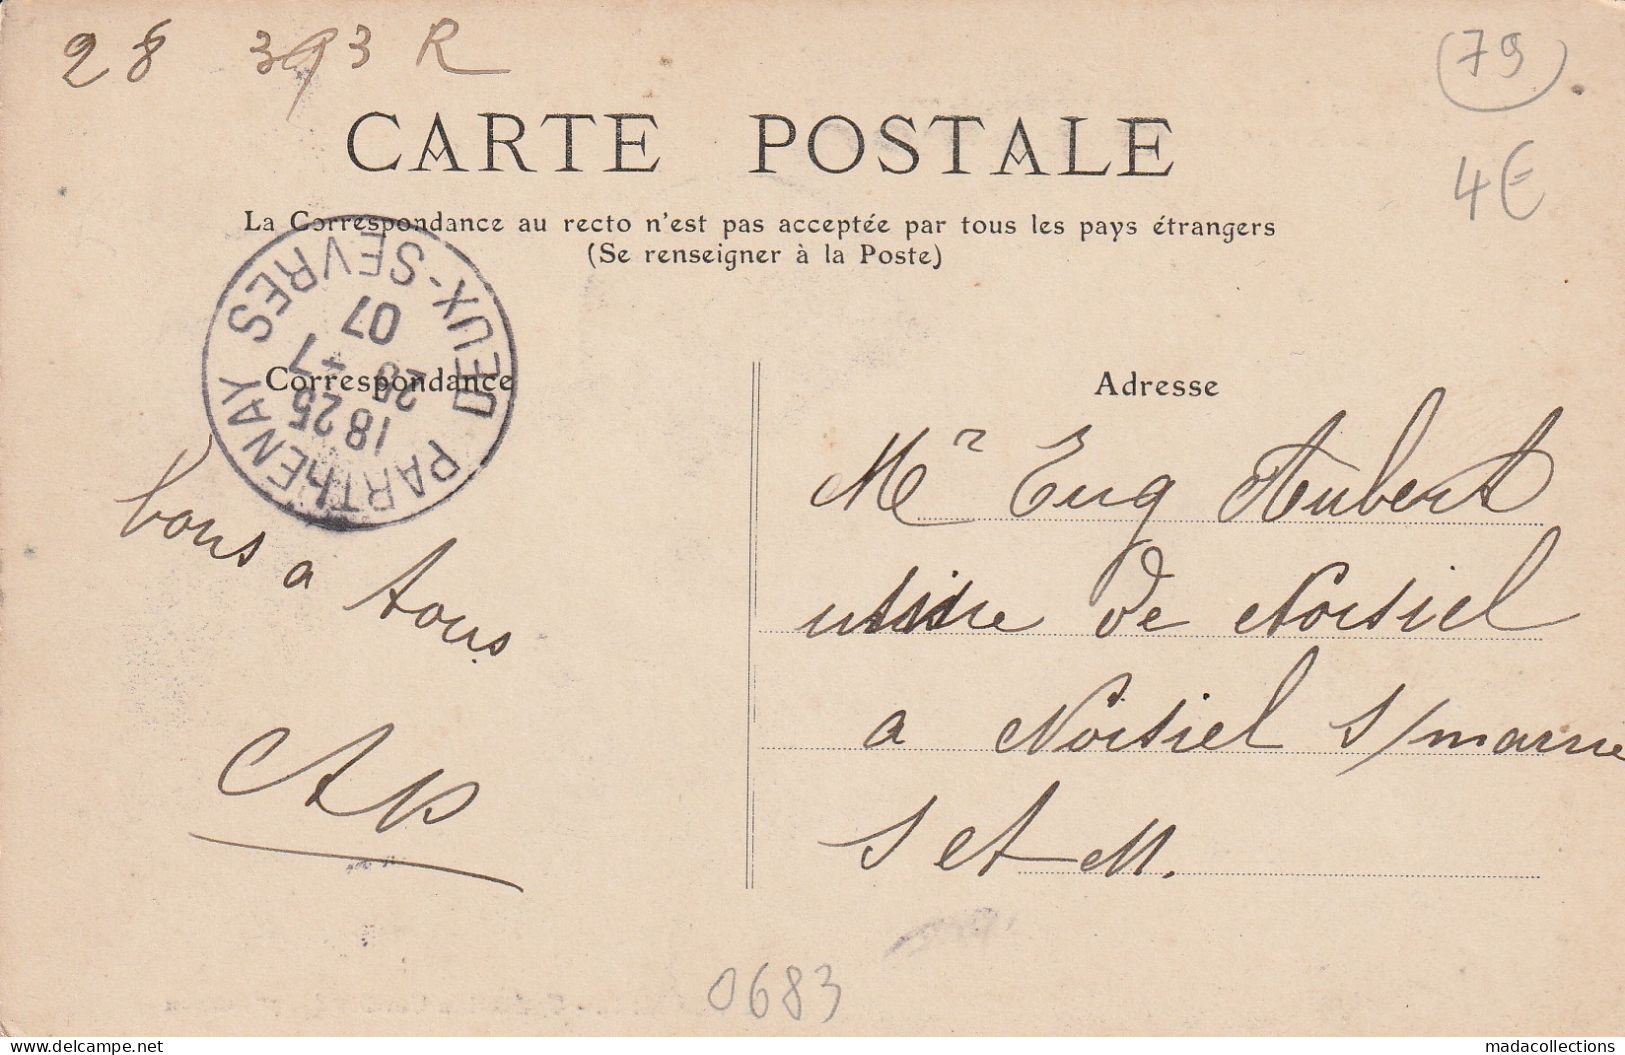 28 393 R
(79)
4€
CARTE POSTALE
La Correspondance au recto n'est pas acceptée par tous les pays étrangers
(Se renseigner à la Poste)
PARTHENAY
DEUX-SEVRES
18 25
28 - 7
07
Correspondance
bons a tous
Adresse
Mr Eug Aubert
usine de Noisiel
a Noisiel s/marne
S et M.
0683
delcampe.net
madacollections